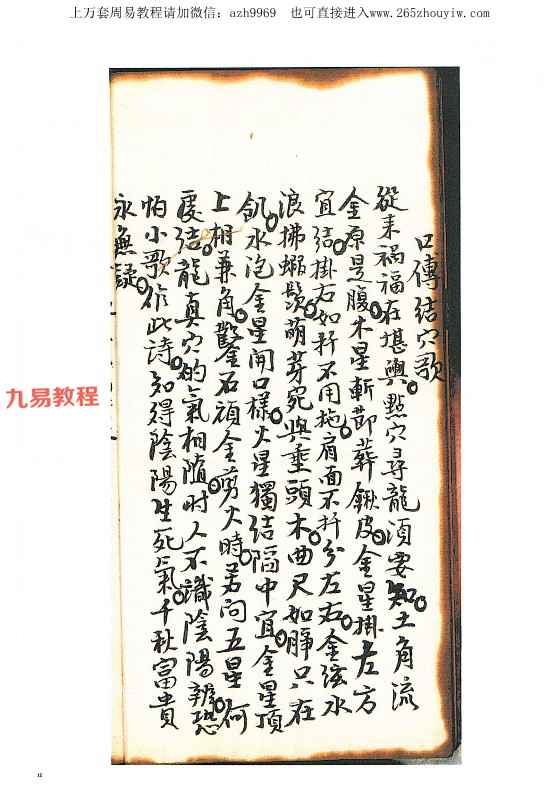 上万套周易教程请加微信：azh9969 也可直接进入www.265zhouyiw.com
口傳结穴歌
從来禍福在堪輿。點穴尋龍湏要知。土角流
金原是腹。木星斬莭葬鍬皮。金星掛左方
宜结。掛右如扦不用拖。肩面不扦分左右。金弦水
浪拂蝦鬚。萌芽宛與垂頭木。曲尺如脝只在
水泡金星開口樣。火星獨结陷中宜。金星頂
上相兼角。鑿石頑金剪火時。若问五星何
處结。龍真穴的氣相随。时人不識陰陽辨。恐
怕小歌作此詩。知得陰陽生死氣。千秋富貴
永無疑。
九易教程